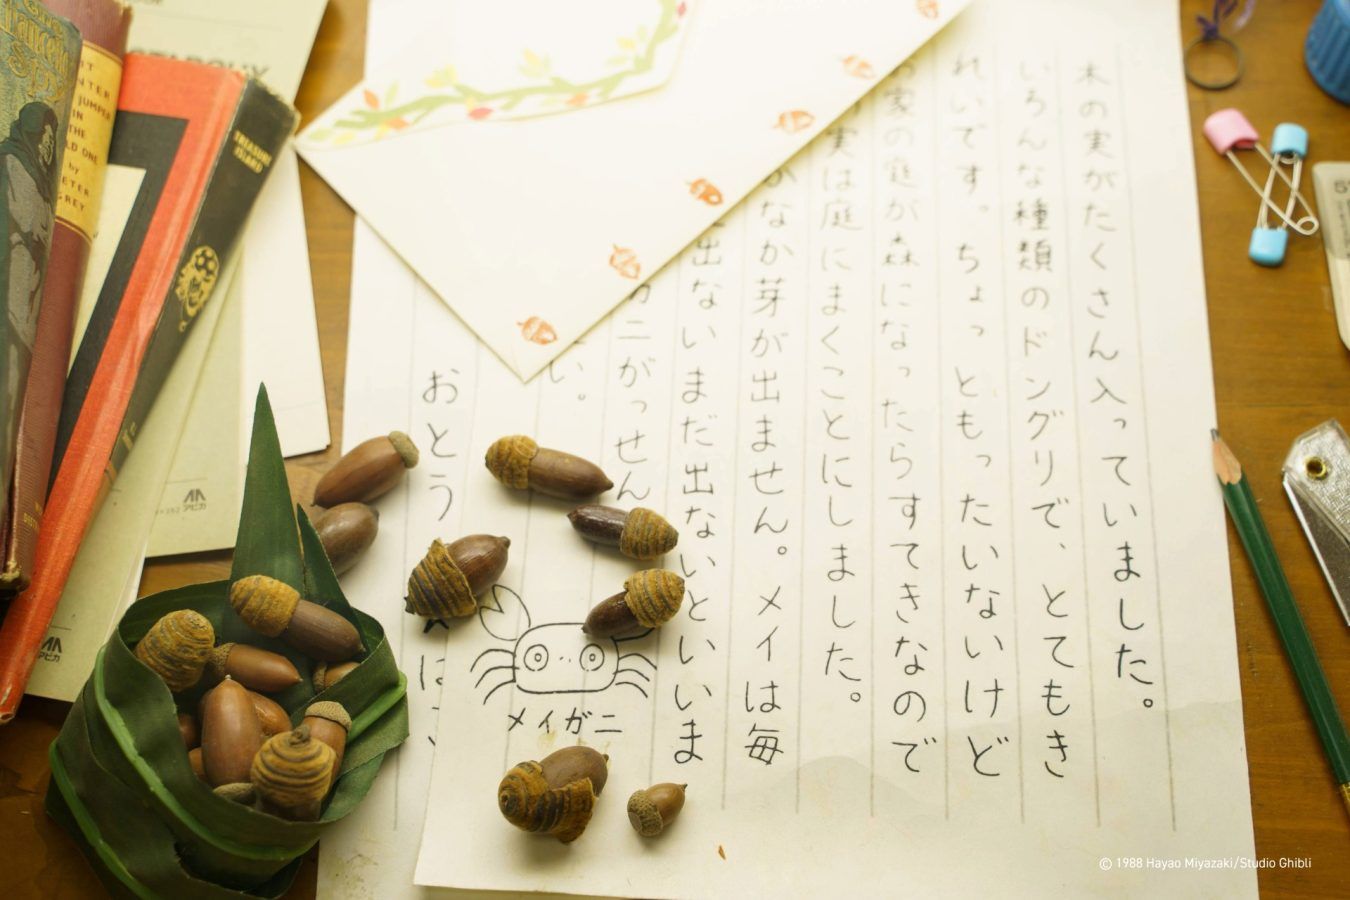 木の実がたくさん入っていました。
いろんな種類のドングリで、とてもき
れいです。ちょっともったいないけど
お家の庭が森になったらすてきなので
実は庭にまくことにしました。
なかなか芽が出ません。メイは毎
出ないまだ出ないといいま
カニがっせん
い。
メイガニ
おとう
に
TREASURE
ISLAND
JUMPER
IN
THE
by
GREY
アピカ
アピカ
© 1988 Hayao Miyazaki/Studio Ghibli